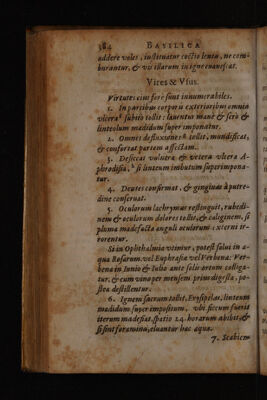 384 BASILICA
addere voles, instituatur coctio lenta, ne com-
burantur, & vis illarum in igne euanescat.
Vires & Vsus.
Virtutes eius ferè sunt innumerabiles.
1. In partibus corporis exterioribus omnia
vlcera subitò tollit: lauentur manè & serò &
linteolum madidum super imponatur.
2. Omnes defluxiones tollit, mundificat,
& confortat partem affectam.
3. Desiccat vulnera & vetera vlcera A-
phrodisia, si linteum imbutum superimpona-
tur.
4. Dentes confirmat, & gingiuas à putre-
dine conseruat.
5. Oculorum lachrymas restinguit, rubedi-
nem & oculorum dolores tollit, & caliginem, si
pluma madefacta anguli oculorum externi ir-
rorentur.
Si in Ophthalmia vtemur, potest solui in a-
qua Rosarum vel Euphrasiæ vel Verbenæ: Ver-
bena in Iunio & Iulio ante solis ortum colliga-
tur, & cum vino per mensem primum digesta, po-
stea destillentur.
6. Ignem sacrum tollit, Erysipelas, linteum
madidum super impositum, vbi siccum fuerit
iterum madefiat, spatio 24. horarum abibit, &
si sint foramina, eluantur hac aqua.
7. Scabiem